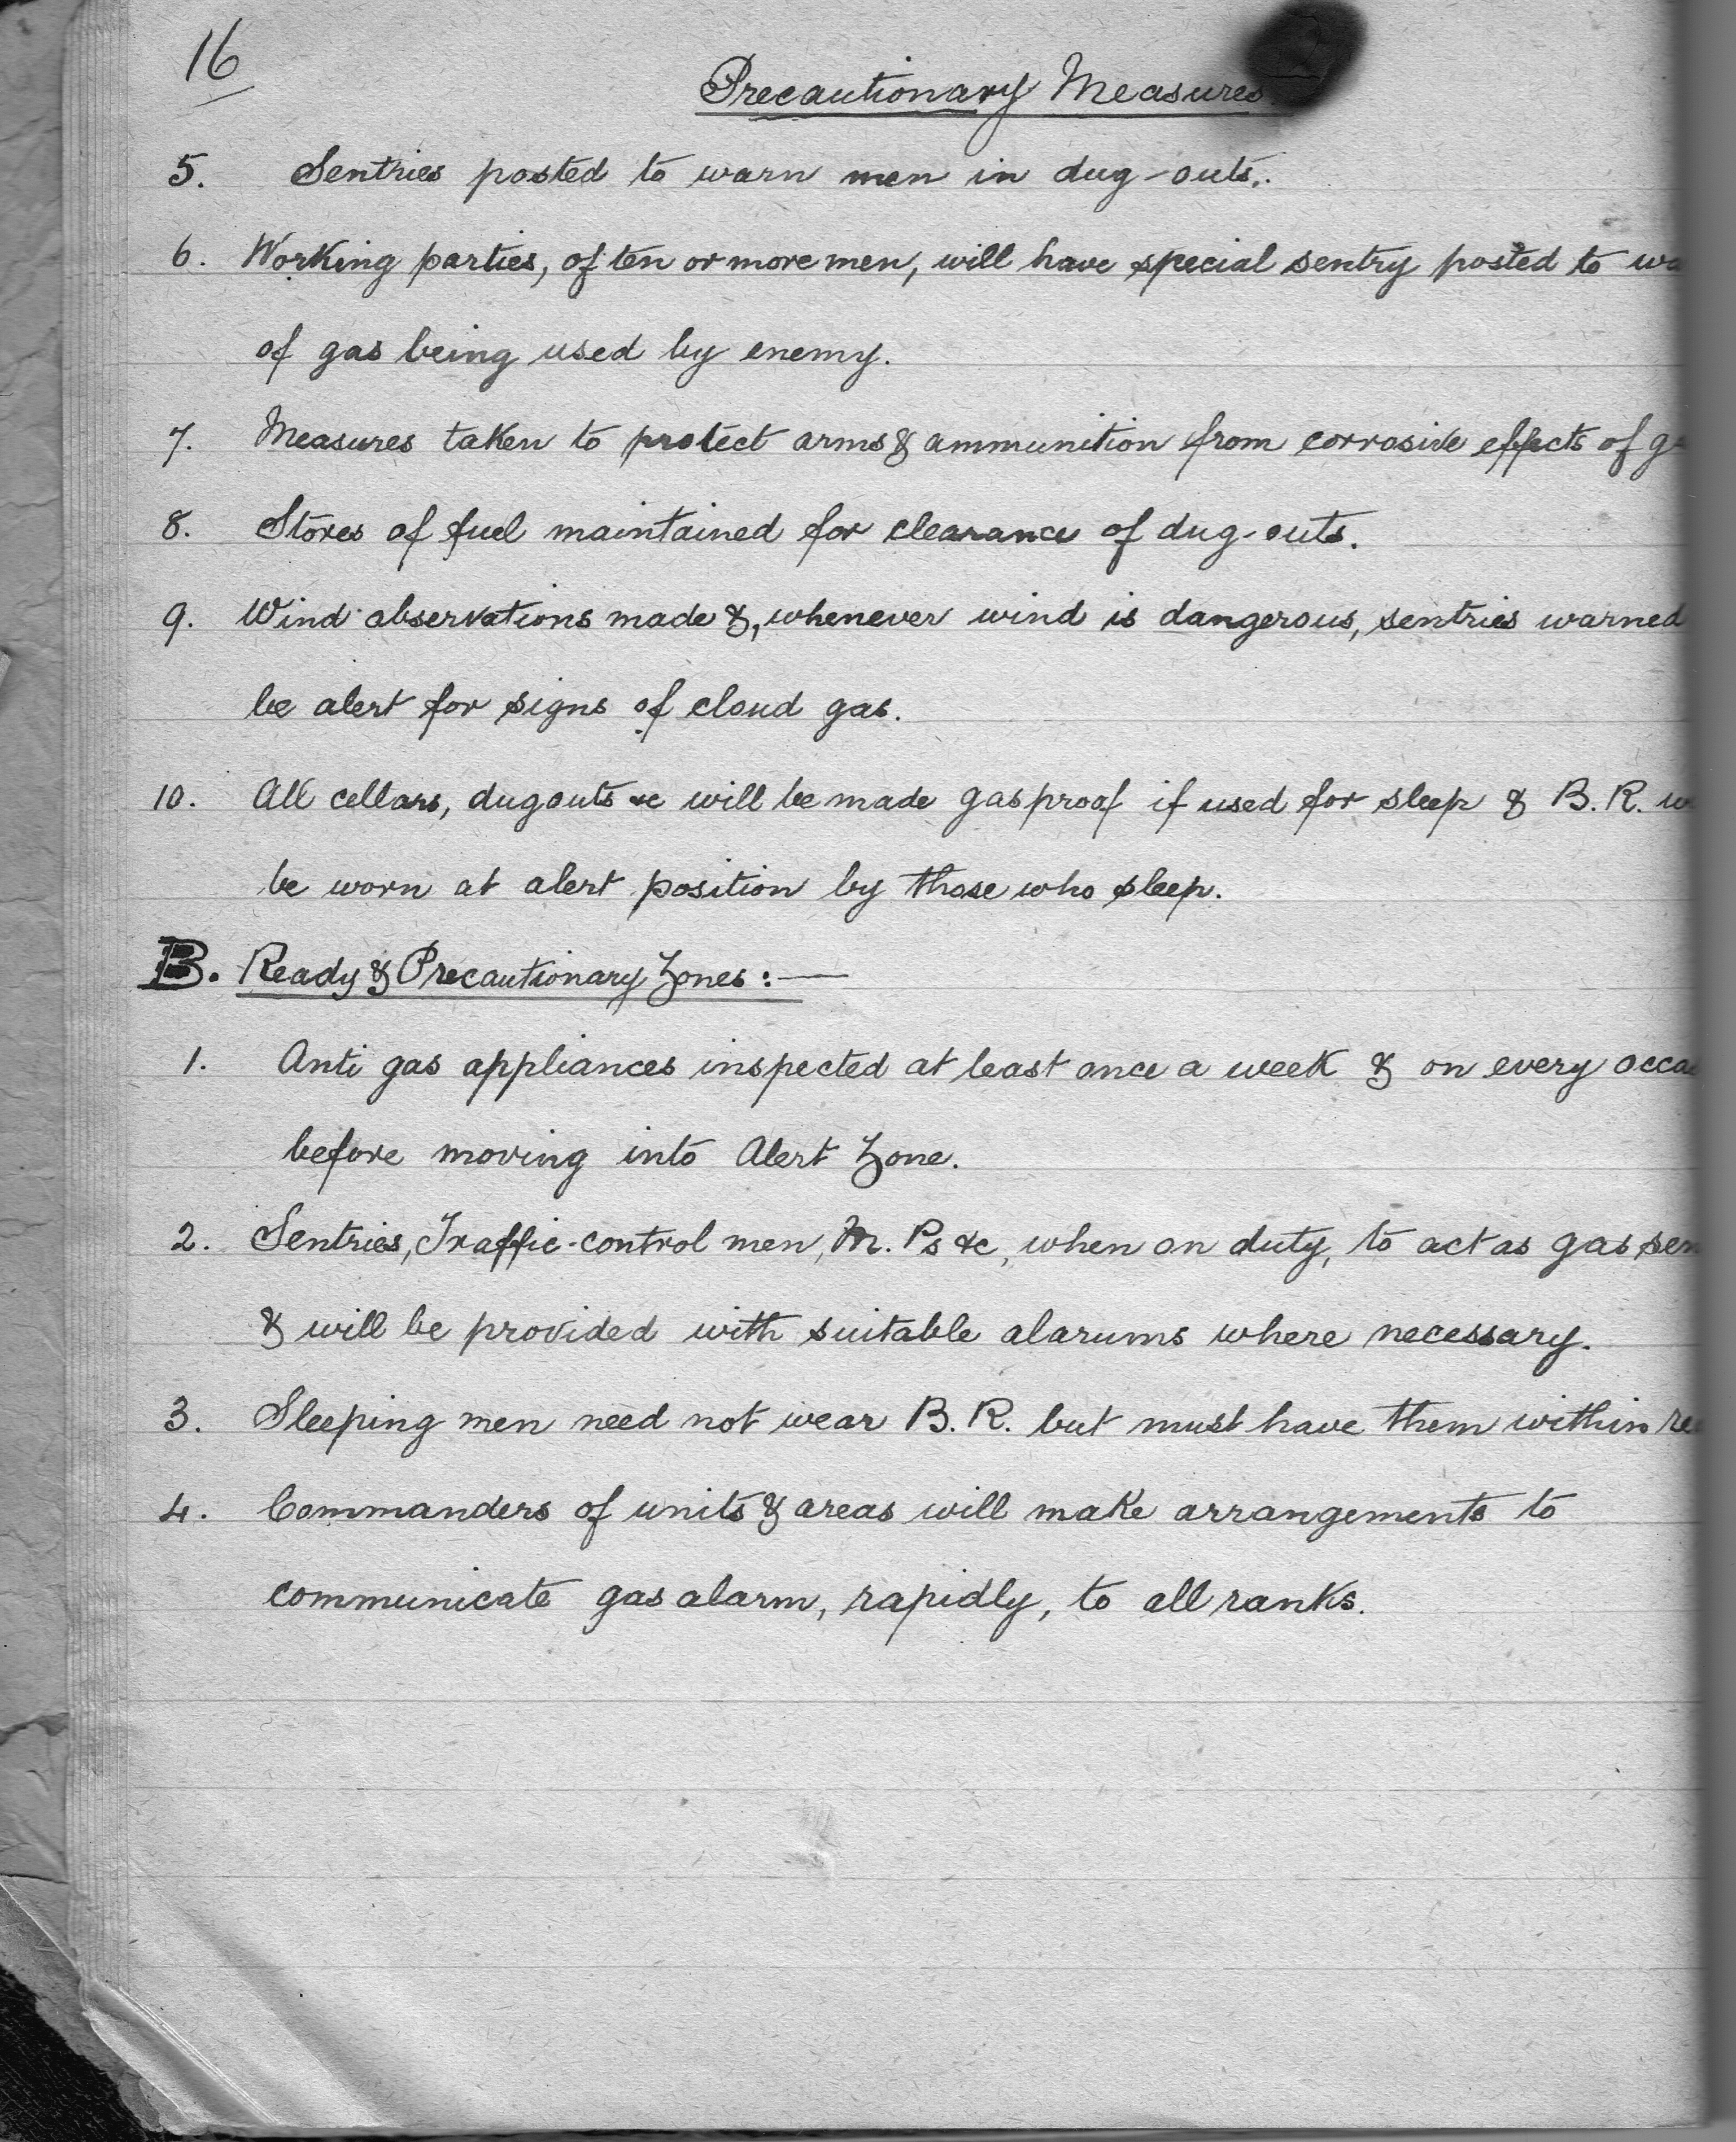 16
Precautionary Measures.
5. Sentries posted to warn men in dug-outs.
6. Working parties, of ten or more men, will have special sentry posted to
of gas being used by enemy.
7. Measures taken to protect arms & ammunition from corrosive effects of
8. Stores of fuel maintained for clearance of dug-outs.
9. Wind observations made &, whenever wind is dangerous, sentries warned
be alert for signs of cloud gas.
10. All cellars, dugouts &c will be made gasproof if used for sleep & B. R.
be worn at alert position by those who sleep.
B. Ready & Precautionary Zones:—
1. Anti gas appliances inspected at least once a week & on every
before moving into Alert Zone.
2. Sentries, Traffic-control men, M. Ps &c, when on duty, to act as gas
& will be provided with suitable alarums where necessary.
3. Sleeping men need not wear B. R. but must have them within
4. Commanders of units & areas will make arrangements to
communicate gas alarm, rapidly, to all ranks.